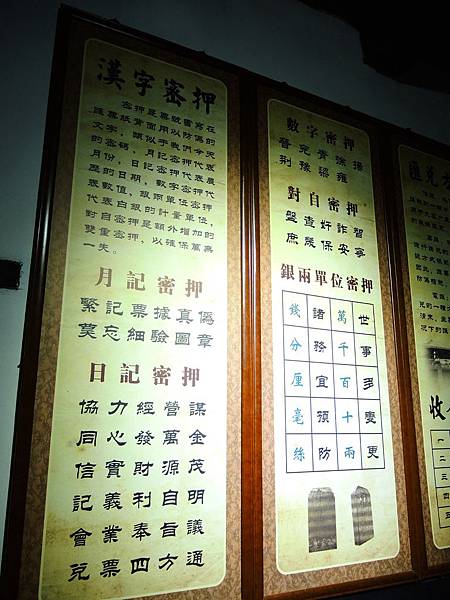 漢字密押
密押是票號書寫在
匯票紙背面用以防偽的
文字，類似于我們今天
的密碼，月記密押代表
月份，日記密押代表農
曆的日期，數字密押代
表數值，銀兩單位密押
代表白銀的計量單位，
對自密押是額外增加的
雙重密押，以確保萬無
一失。
月記密押
緊記票據真偽
莫忘細驗圖章
日記密押
協力經營謀
同心發萬金
信實財源茂
記義利自明
會業奉旨議
兌票四方通
數字密押
晉兗青徐揚
荊豫梁雍
對自密押
盤查奸詐智
庶幾保安寧
銀兩單位密押
錢 諸 萬 世
分 務 千 事
厘 宜 百 多
毫 預 十 變
絲 防 兩 更
匯兌
收
一
二
三
四
五